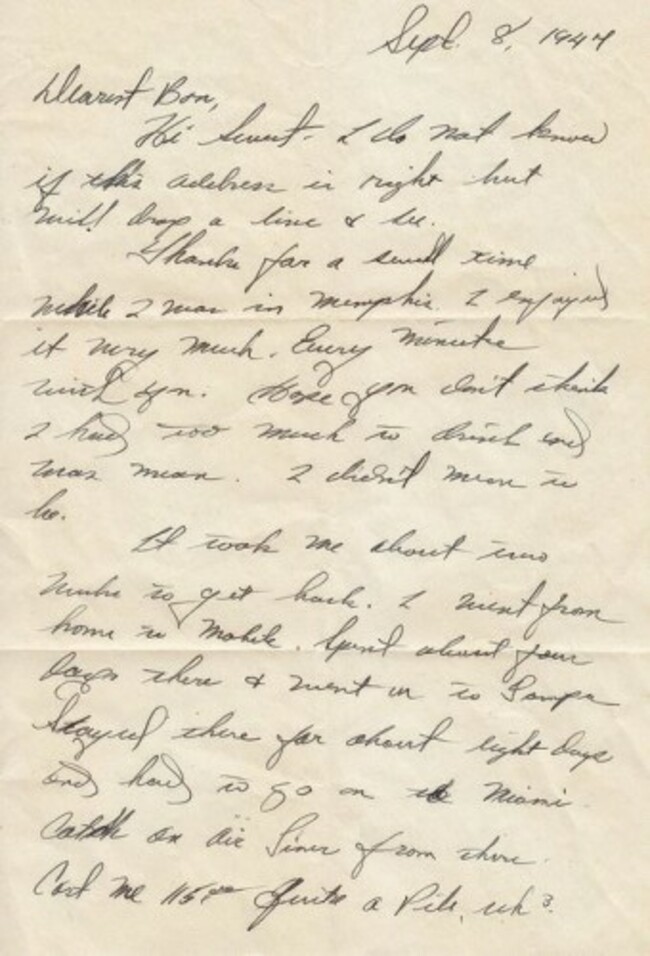 Sept. 8, 1947
Dearest Bon,
Hi Sweet - I do not know
if this address is right but
will drop a line & see.
Thanks for a swell time
while I was in Memphis. I enjoyed
it very much. Every minute
with you. Hope you don't think
I had too much to drink and
was mean. I didn't mean to
be.
It took me about two
weeks to get back. I went from
home to Mobile. Spent about four
days there & went on to Tampa
Stayed there for about eight days
and had to go on to Miami.
Catch an air liner from there.
Cost me Quite a Pile, uh?